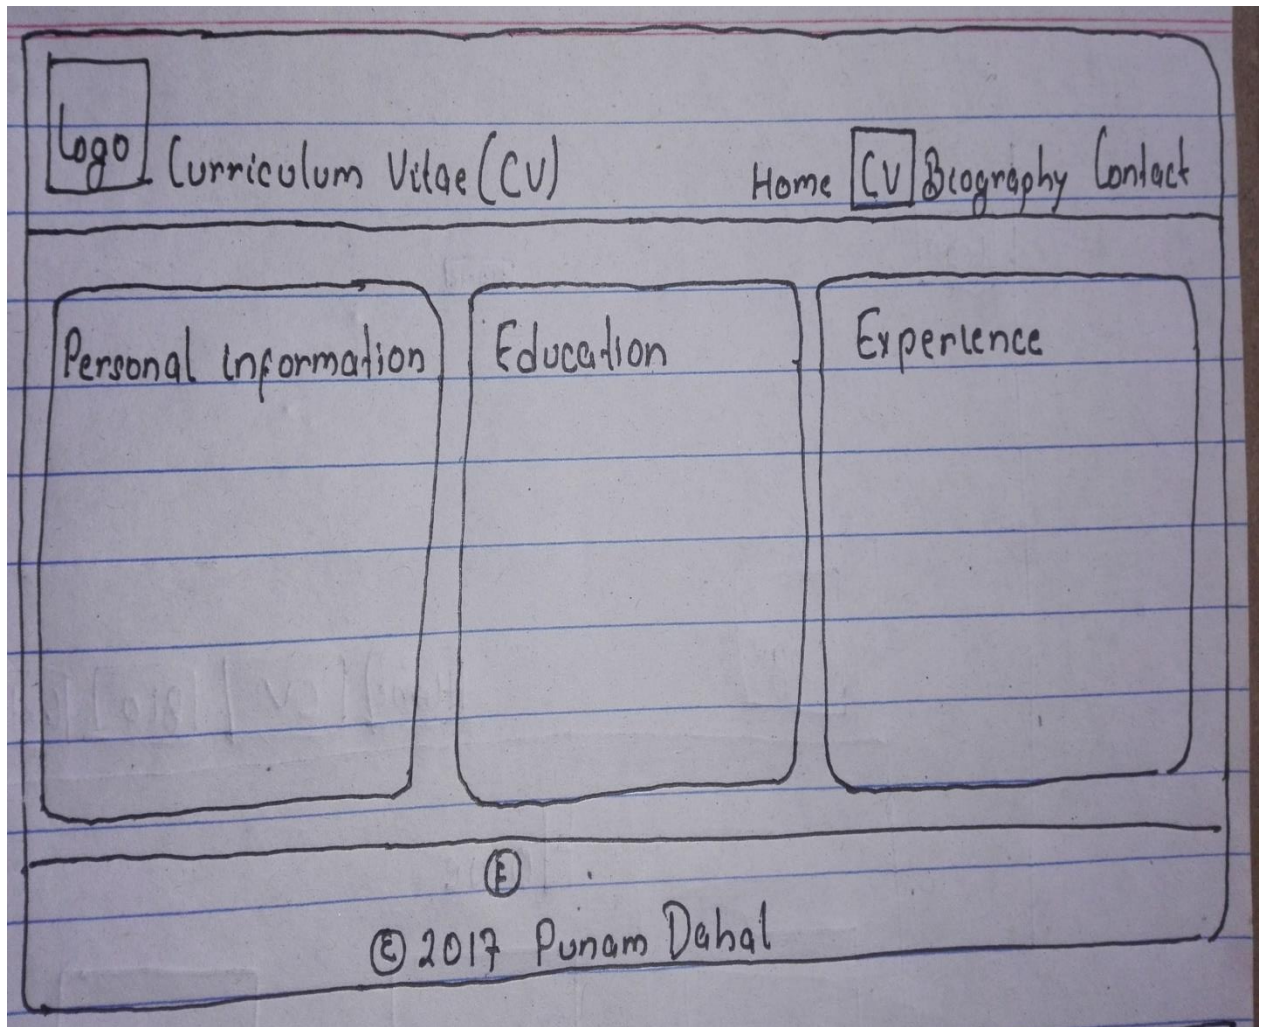 Logo Curriculum Vitae (CV) Home CV Biography Contact
Personal information
Education
Experience
E
© 2017 Punam Dahal